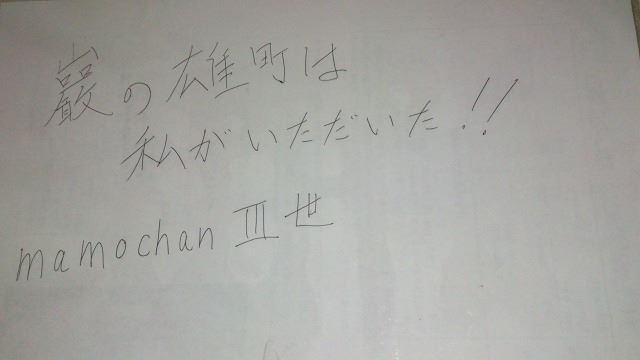 巖の雄町は
私がいただいた!!
mamochan III世